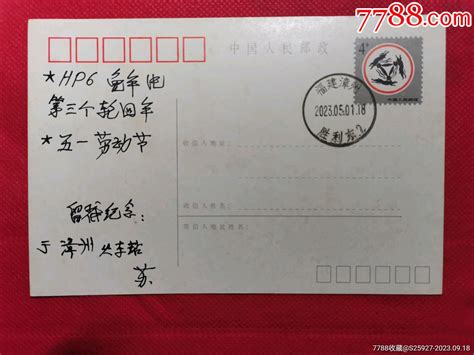 7788.com
中国人民邮政
4分
中国人民邮政
福建漳州
2023.05.01.18
胜利东2
*HP6 兔年
第三个轮回年
*五一劳动节
收信人地址:
收信人姓名:
寄信人地址姓名:
留静纪念:
于 漳州 火车站
苏
7788收藏@S25927-2023.09.18